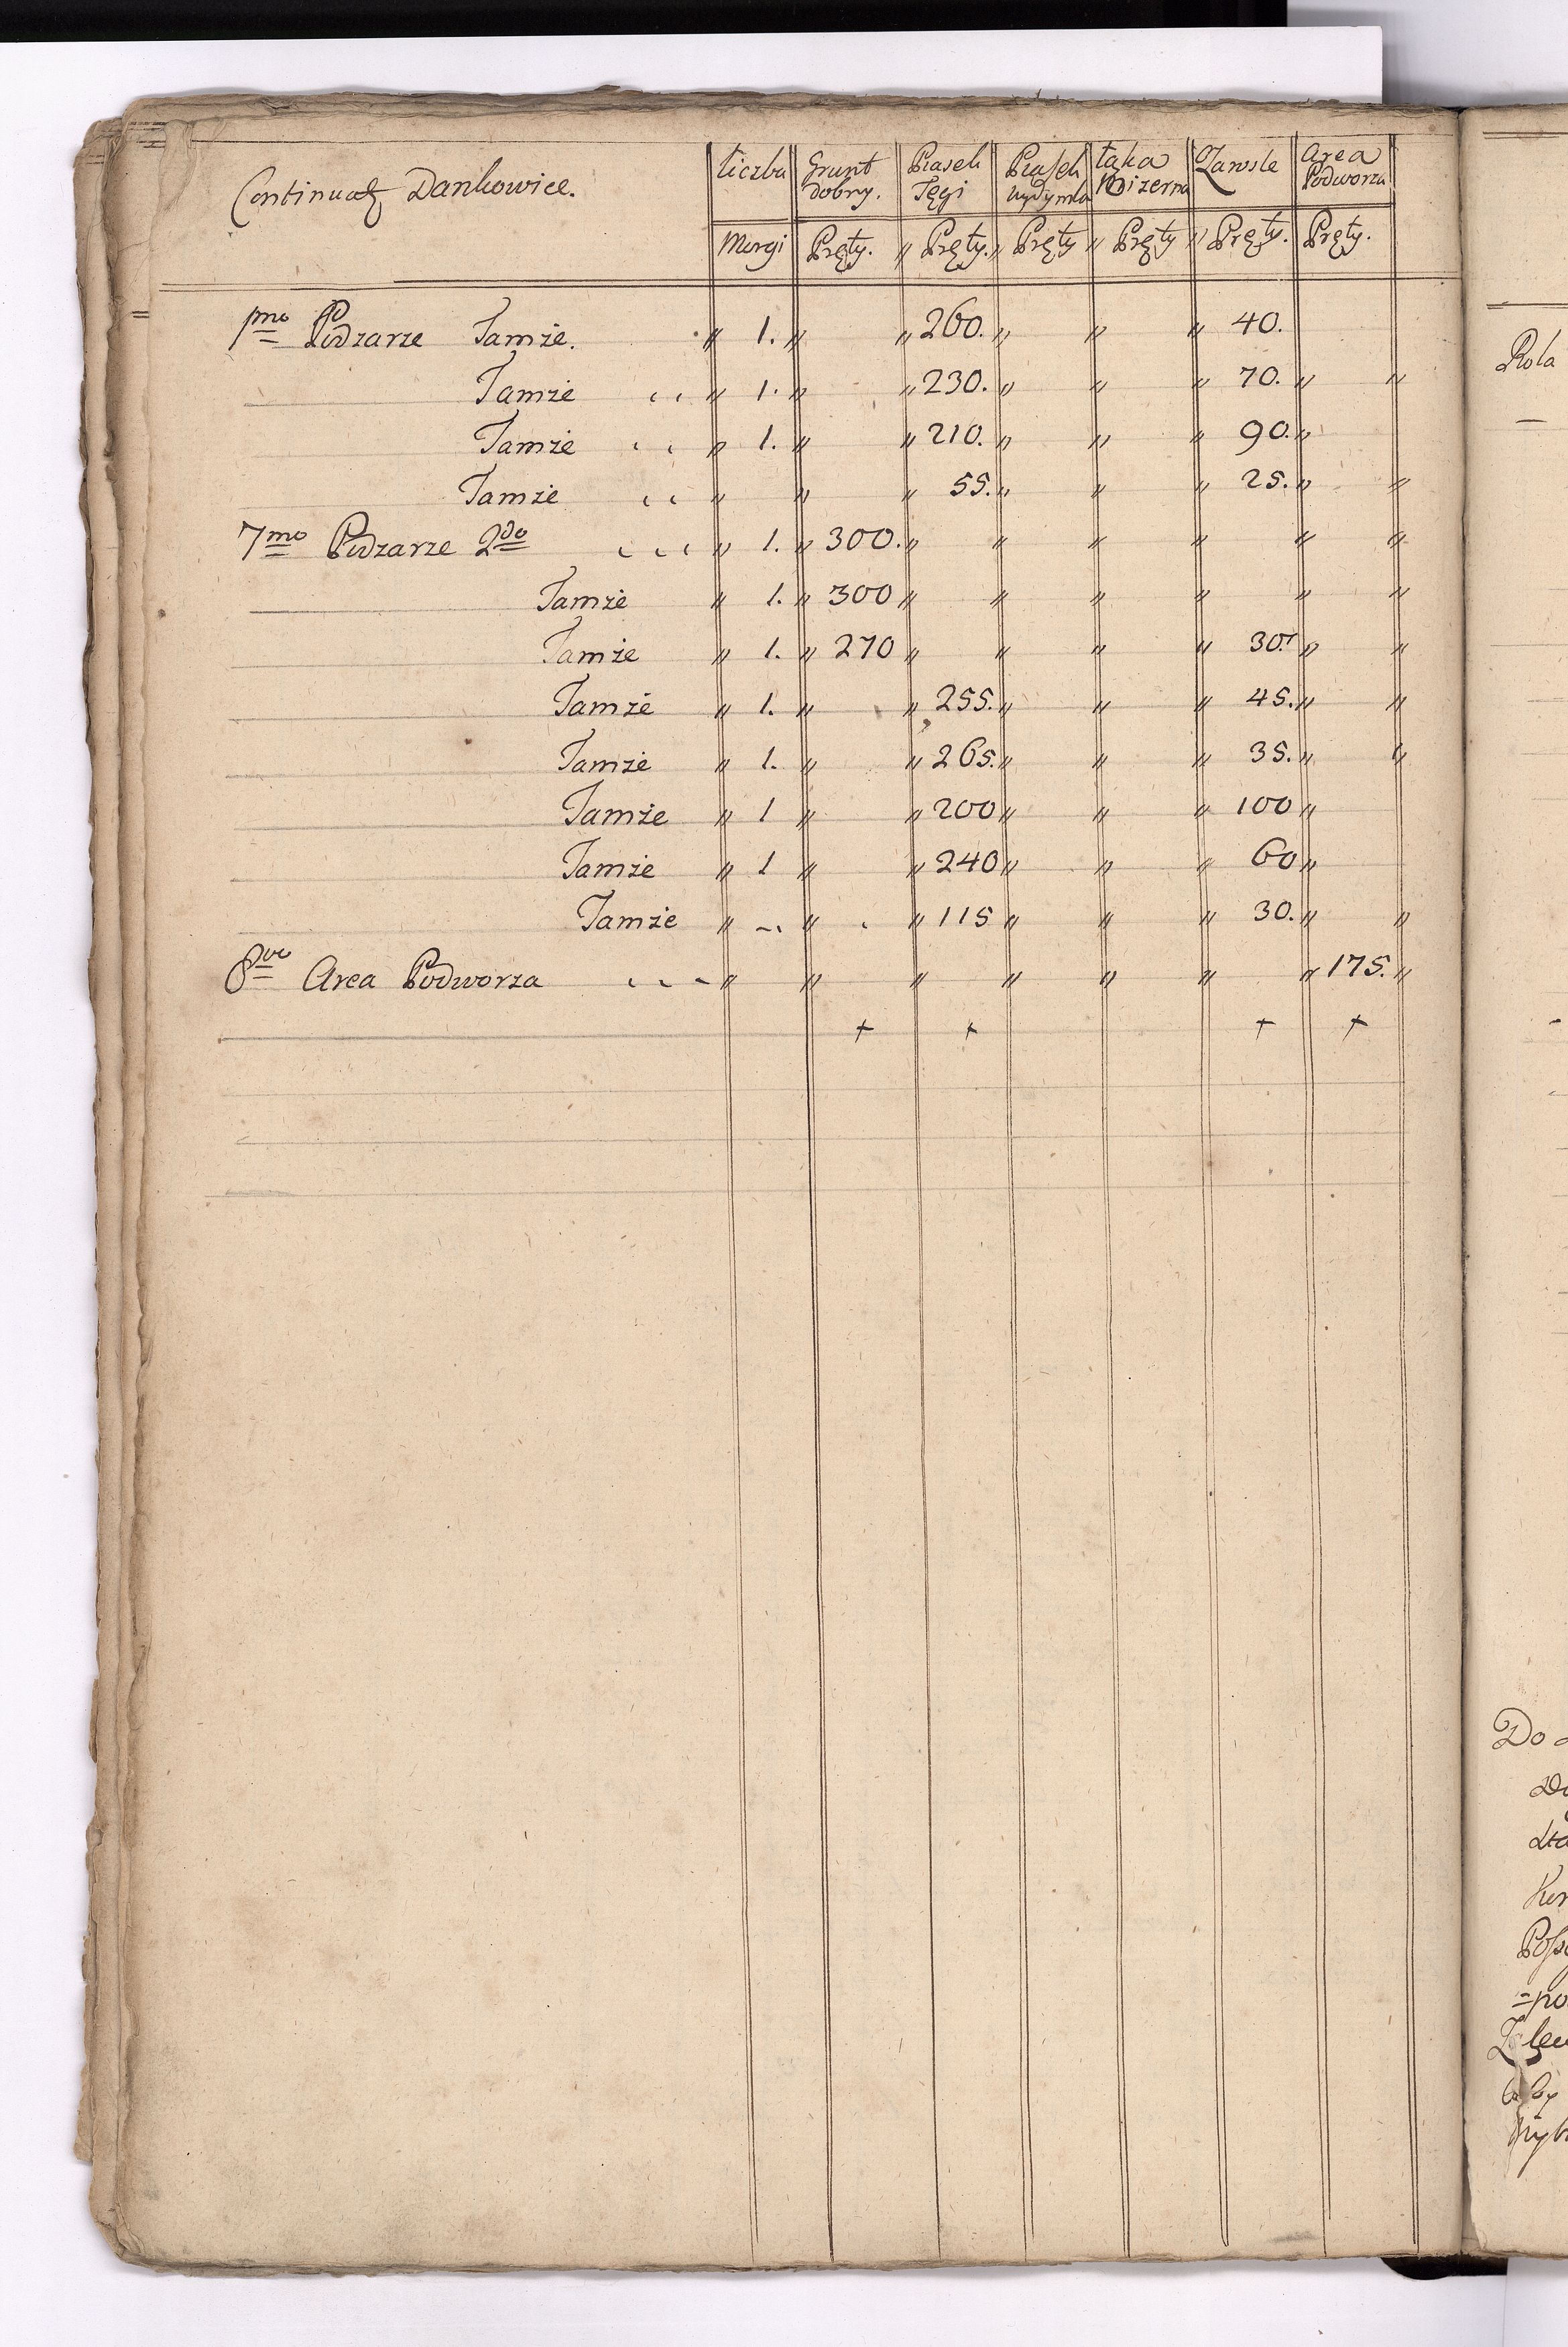 Continuat͡ Dankowice. Liczba Grunt dobry. Piasek Tęgi Piasek wydymla Łąka Mizerna Zawsle Area Podworza
Morgi Pręty. „ Pręty. „ Pręty „ Pręty „ Pręty. Pręty.
1mo Podzarze Tamże. „ 1. „ „ 260. „ „ „ 40.
Tamże „ 1. „ „ 230. „ „ „ 70. „ „
Tamże „ 1. „ „ 210. „ „ „ 90. „
Tamże „ „ „ 55. „ „ „ 25. „ „
7mo Podzarze 2do „ 1. „ 300. „ „ „ „ „ „
Tamże „ 1. „ 300 „ „ „ „ „ „
Tamże „ 1. „ 270 „ „ „ „ 30. „ „
Tamże „ 1. „ „ 255. „ „ „ 45. „ „
Tamże „ 1. „ „ 265. „ „ „ 35. „ „
Tamże „ 1 „ „ 200 „ „ „ 100 „
Tamże „ 1 „ „ 240 „ „ „ 60 „
Tamże „ -. „ . „ 115 „ „ „ 30. „ „
8vo Area Podworza „ „ „ „ „ „ „ 175. „
+ + + +
Rola
Do